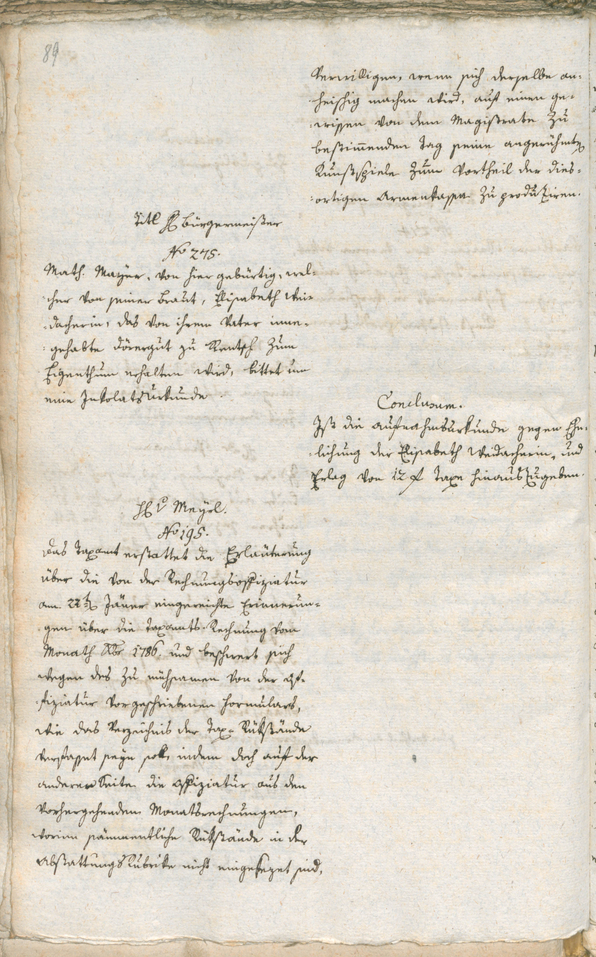 89
verwilligen, wenn sich derselbe an-
heischig machen wird, auf einen ge-
wissen von dem Magistrate zu
bestimmenden Tag seine angerühmte
Kunstspiele zum Vortheil der dies-
ortigen Armenkassa zu produziren.
Titl H Bürgermeister
No 245.
Math. Mayer, von hier gebürtig, wel-
cher von seiner Braut, Elisabeth Wei-
dacherin, das von ihrem Vater inne-
gehabte zu Rentsch zum
Eigenthum erhalten wird, bittet um
eine Inkolatsurkunde
Conclusum.
Ist die Aufnahmsurkunde gegen Ehe-
lichung der Elisabeth Weidacherin, und
Erlag von 12 f Taxe hinauszugeben.
H v Mayrl.
No 195.
Das Taxamt erstattet die Erläuterung
über die von der Rechnungsoffiziatur
am 22t Jäner eingereichte Erinnerun-
gen über die Taxamts-Rechnung vom
Monath Xber 1786 und beschwert sich
wegen des zu mühsamen von der Of-
fiziatur vorgeschriebenen Formulars,
wie das Verzeichnis der Tax-Rükstände
verfasset seyn soll, indem doch auf der
anderen Seite die Offiziatur aus den
vorhergehenden Monatsrechnungen,
worinn sämmentliche Rükstände in der
Abstattungs Rubrike nicht eingesezet sind,